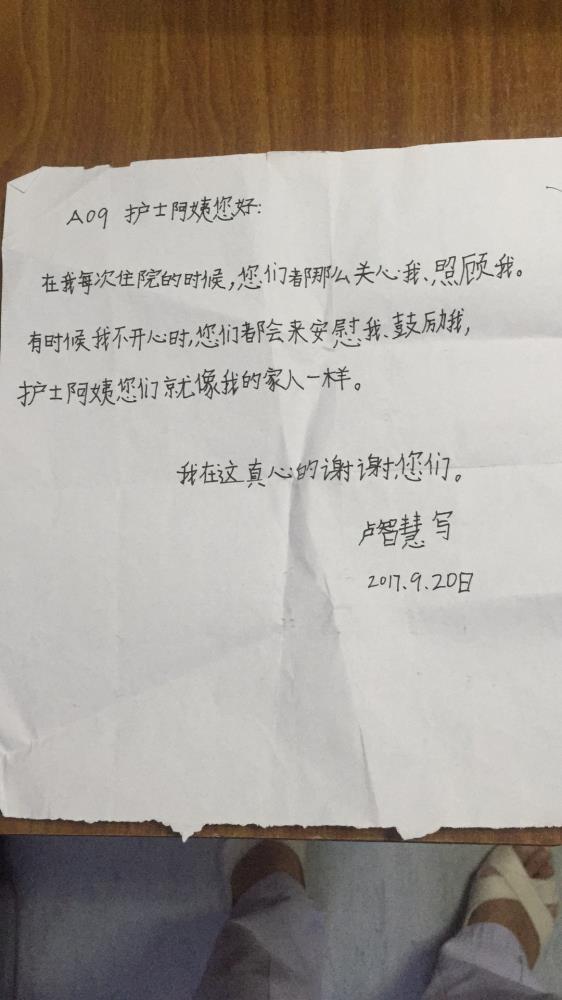 A09 护士阿姨您好:
在我每次住院的时候,您们都那么关心我、照顾我。
有时候我不开心时,您们都会来安慰我、鼓励我,
护士阿姨您们就像我的家人一样。
我在这真心的谢谢您们。
卢智慧 写
2017.9.20日